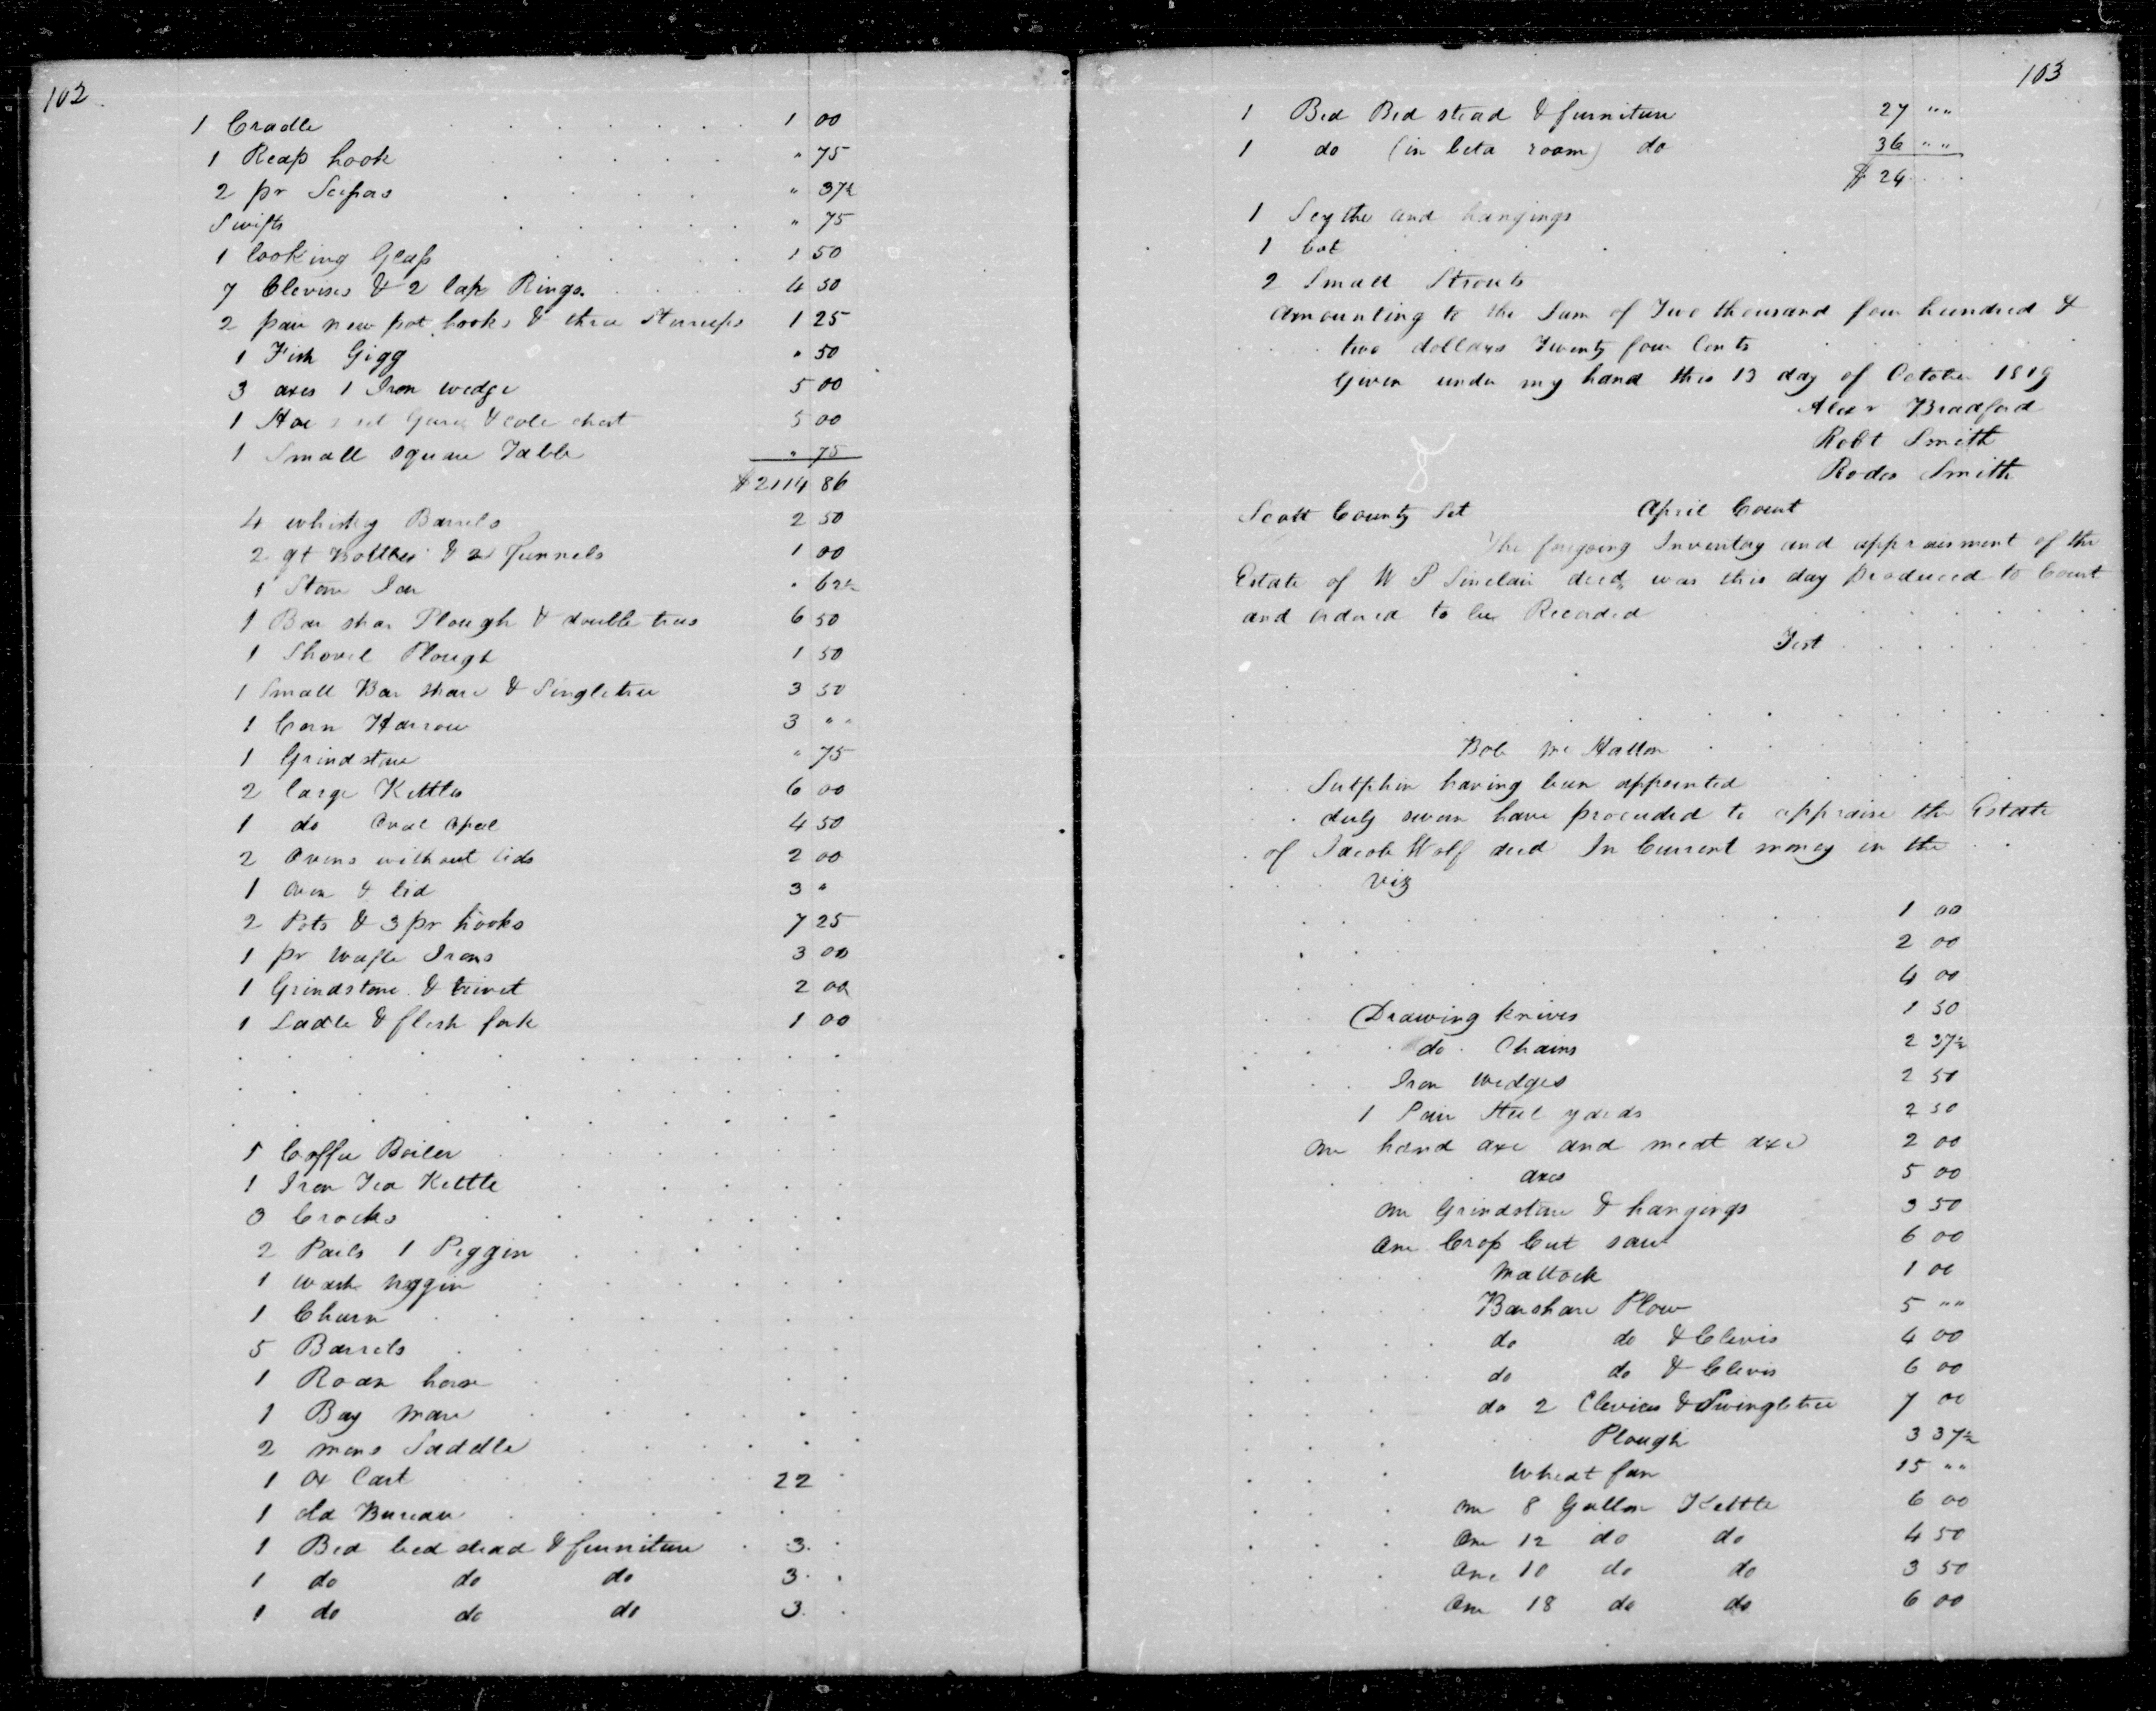 102
1 Cradle 1 00
1 Reap hook " 75
2 pr Scissors " 37½
Swifts " 75
1 looking Glass 1 50
7 Clevises & 2 lap Rings 4 50
2 pair new pot hooks & three Stirrups 1 25
1 Fish Gigg " 50
3 axes 1 Iron wedge 5 00
1 Hoe & cole chest 5 00
1 Small square Table " 75
$2114 86
4 whiskey Barrels 2 50
2 qt Bottles & 2 funnels 1 00
1 Stone Jar " 62½
1 Bar shar Plough & double trees 6 50
1 Shovel Plough 1 50
1 Small Bar share & Singletree 3 50
1 Corn Harrow 3 " "
1 Grindstone " 75
2 large Kettles 6 00
1 do Oval 4 50
2 Ovens without lids 2 00
1 oven & lid 3 "
2 Pots & 3 pr hooks 7 25
1 pr Wafle Irons 3 00
1 Grindstone & trivet 2 00
1 Ladle & flesh fork 1 00
1 Coffee Boiler
1 Iron Tea Kettle
3 Crocks
2 Pails 1 Piggin
1 wash
1 Churn
5 Barrels
1 Roan horse
1 Bay mare
2 mens Saddle
1 Ox Cart 22
1 old Bureau
1 Bed bed stead & furniture 3
1 do do do 3
1 do do do 3
103
1 Bed Bed stead & furniture 27 " "
1 do (in room) do 36 " "
$ 24
1 Scythe and hangings
1
2 Small
Amounting to the Sum of Two thousand four hundred &
two dollars Twenty four Cents
Given under my hand this 13 day of October 1819
Alexr Bradford
Robt Smith
Rodes Smith
Scott County Sct April Court
The foregoing Inventory and appraisment of the
Estate of W P Sinclair decd was this day produced to Court
and ordered to be Recorded
Test
Bob
Sutphin having been appointed
duly sworn have proceeded to appraise the Estate
of Jacob Wolf decd In Current money in the
Viz
1 00
2 00
4 00
Drawing knives 1 50
do Chains 2 37½
Iron wedges 2 50
1 Pair Steel yards 2 50
One hand axe and meat axe 2 00
axes 5 00
One Grindstone & hangings 3 50
One Crop Cut saw 6 00
Mattock 1 00
Barshare Plow 5 " "
do do & Clevis 4 00
do do & Clevis 6 00
do 2 Clevices & Swingletree 7 00
Plough 3 37½
Wheat fan 15 " "
One 8 Gallon Kettle 6 00
One 12 do do 4 50
One 10 do do 3 50
One 18 do do 6 00